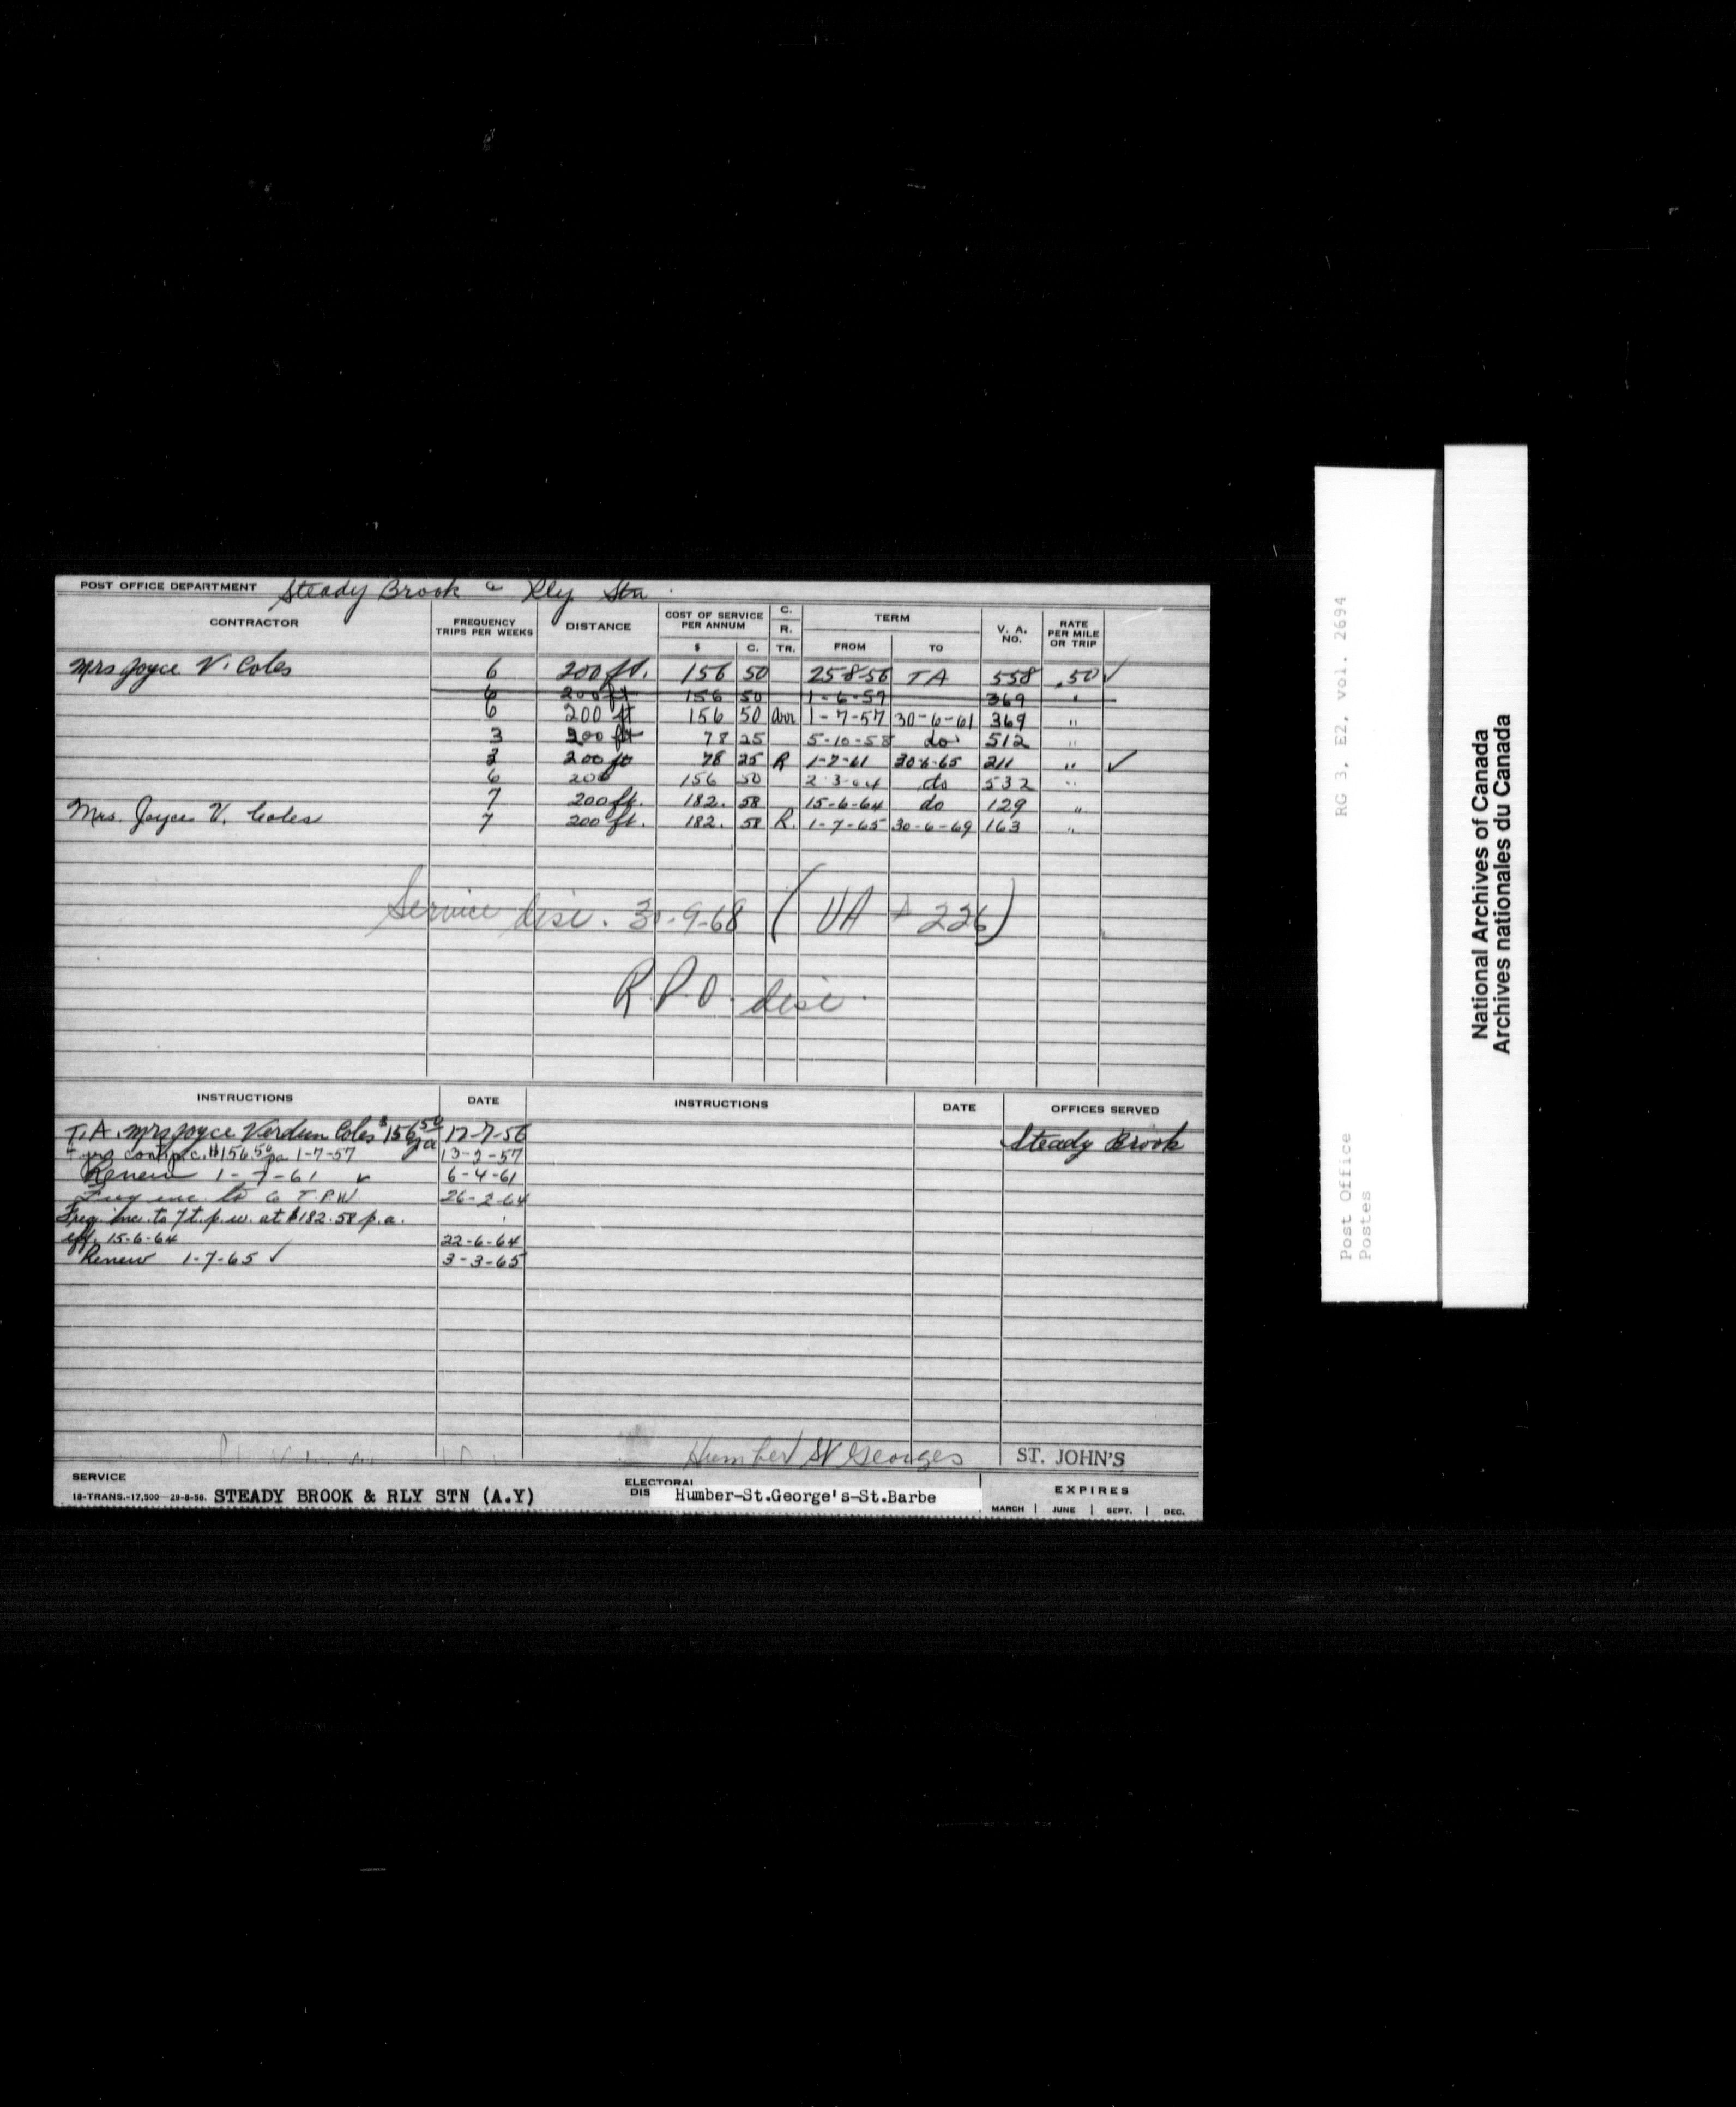 POST OFFICE DEPARTMENT Steady Brook & Rly. Stn
CONTRACTOR FREQUENCY TRIPS PER WEEKS DISTANCE COST OF SERVICE PER ANNUM $ C. C. R. TR. TERM FROM TO V. A. NO. RATE PER MILE OR TRIP
Mrs Joyce V. Coles 6 200 ft. 156 50 25-8-56 TA 558 .50 ✓
6 200 ft 156 50 1-6-57 369 "
6 200 ft 156 50 1-7-57 30-6-61 369 "
3 200 ft 78 25 5-10-58 do 512 "
3 200 ft 78 25 R 1-7-61 30-6-65 211 " ✓
6 200 156 50 2-3-64 do 532 "
7 200 ft. 182. 58 15-6-64 do 129 "
Mrs. Joyce V. Coles 7 200 ft. 182. 58 R. 1-7-65 30-6-69 163 "
Service disc. 30-9-68 (VA 226)
R.P.O. disc.
INSTRUCTIONS DATE INSTRUCTIONS DATE OFFICES SERVED
T.A. Mrs Joyce Verdun Coles $156.50 pa 17-7-56 Steady Brook
4 yrs cont. p.c. $156.50 pa 1-7-57 13-2-57
Renew 1-7-61 ✓ 6-4-61
Freq inc. to 6 T.P.W 26-2-64
Freq. inc. to 7 t.p.w. at $182.58 p.a.
eff. 15-6-64 22-6-64
Renew 1-7-65 ✓ 3-3-65
Humber St Georges ST. JOHN'S
SERVICE
18-TRANS.-17,500-29-8-56. STEADY BROOK & RLY STN (A.Y) ELECTORAL DIS Humber-St.George's-St.Barbe EXPIRES
MARCH | JUNE | SEPT. | DEC.
RG 3, E2, vol. 2694
Post Office
Postes
National Archives of Canada
Archives nationales du Canada